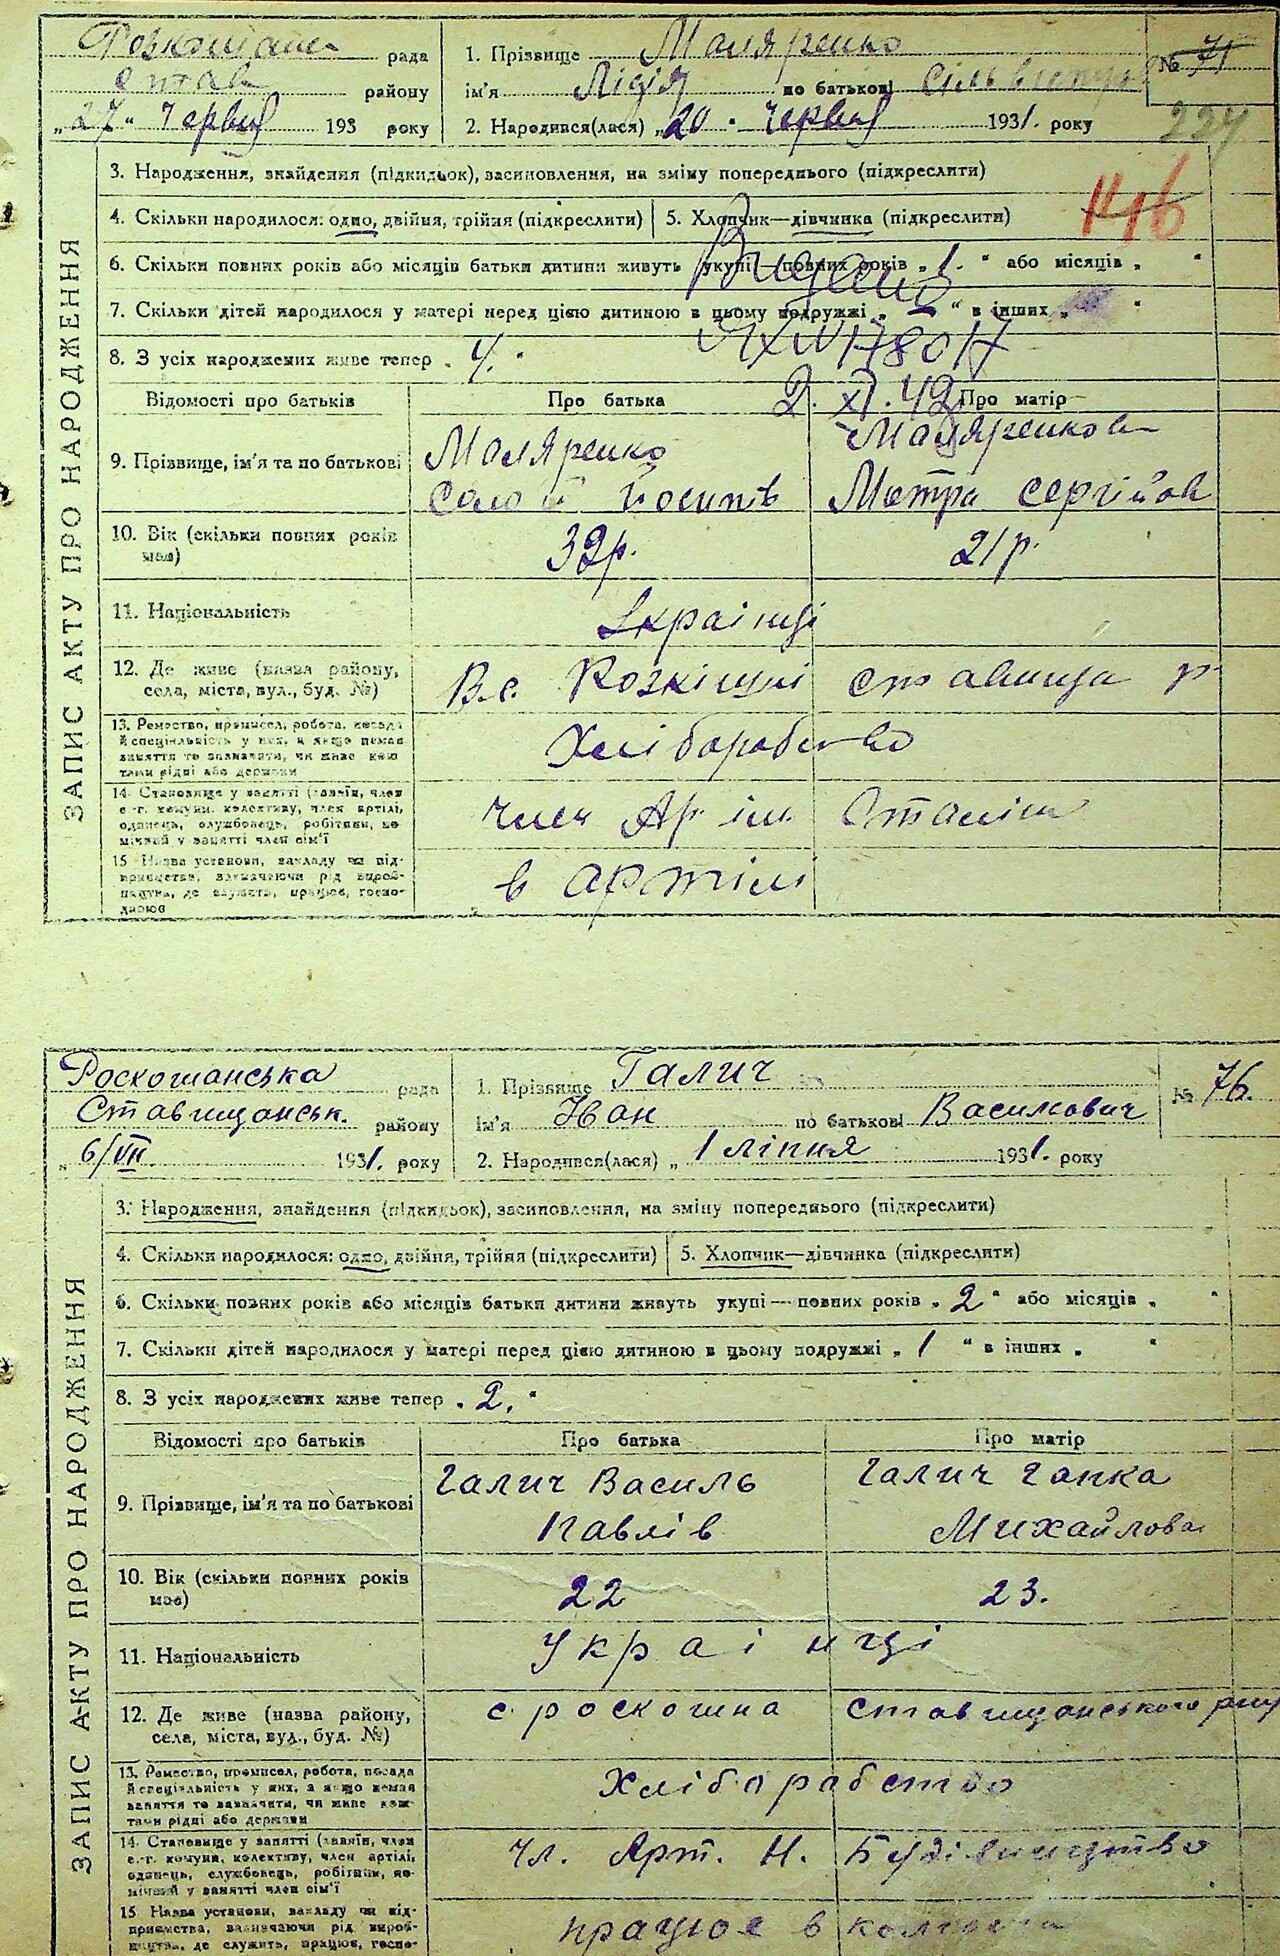 рада
районy
„27“ Червня 193 року
1. Прізвище Маляренко
ім'я Лідія по батькові
№ 71
2. Народився(лася) „20“ червня 1931. року
227
146
ЗАПИС АКТУ ПРО НАРОДЖЕННЯ
3. Народження, знайдення (підкидьок), засиновлення, на зміну попереднього (підкреслити)
4. Скільки народилося: одно, двійня, трійня (підкреслити)
5. Хлопчик—дівчинка (підкреслити)
6. Скільки повних років або місяців батьки дитини живуть укупі—повних років „1.“ або місяців „ “
7. Скільки дітей народилося у матері перед цією дитиною в цьому подружжі „ “ в інших „ “
8. З усіх народжених живе тепер „4.“
2. XI. 42
Відомості про батьків
Про батька
Про матір
9. Прізвище, ім'я та по батькові
Маляренко
Йосипів
Маляренкова
Мотря Сергійов
10. Вік (скільки повних років має)
32р.
21р.
11. Національність
Українці
12. Де живе (назва району, села, міста, вул., буд. №)
В.с. Розкішні Ставища р
13. Ремество, промисел, робота, посада й спеціяльність у них, а якщо немає заняття то зазначити, чи живе коштами рідні або держави
Хліборобство
14. Становище у занятті (хазяїн, член с.-г. комуни, колективу, член артілі, одинець, службовець, робітник, помічний у занятті член сім'ї
член Ар ім. Сталіна
15 Назва установи, закладу чи підприємства, зазначаючи рід виробництва, де служить, працює, господарює
в артілі
Роскошанська рада
Ставищанськ. району
„ 6/VII. 1931. року
1. Прізвище Галич
ім'я Іван по батькові Василович
№ 76.
2. Народився(лася) „ 1 ліпня 1931. року
ЗАПИС АКТУ ПРО НАРОДЖЕННЯ
3. Народження, знайдення (підкидьок), засиновлення, на зміну попереднього (підкреслити)
4. Скільки народилося: одно, двійня, трійня (підкреслити)
5. Хлопчик—дівчинка (підкреслити)
6. Скільки повних років або місяців батьки дитини живуть укупі—повних років „2“ або місяців „ “
7. Скільки дітей народилося у матері перед цією дитиною в цьому подружжі „1“ в інших „ “
8. З усіх народжених живе тепер „2.“
Відомості про батьків
Про батька
Про матір
9. Прізвище, ім'я та по батькові
Галич Василь
Павлів
Галич Ганка
Михайлова
10. Вік (скільки повних років має)
22
23.
11. Національність
Українці
12. Де живе (назва району, села, міста, вул., буд. №)
с. роскошна ставищанського
13. Ремество, промисел, робота, посада й спеціяльність у них, а якщо немає заняття то зазначити, чи живе коштами рідні або держави
Хліборабство
14. Становище у занятті (хазяїн, член с.-г. комуни, колективу, член артілі, одинець, службовець, робітник, помічний у занятті член сім'ї
Чл. Арт. Н. Будівництво
15 Назва установи, закладу чи підприємства, зазначаючи рід виробництва, де служить, працює, госпо-
працює в